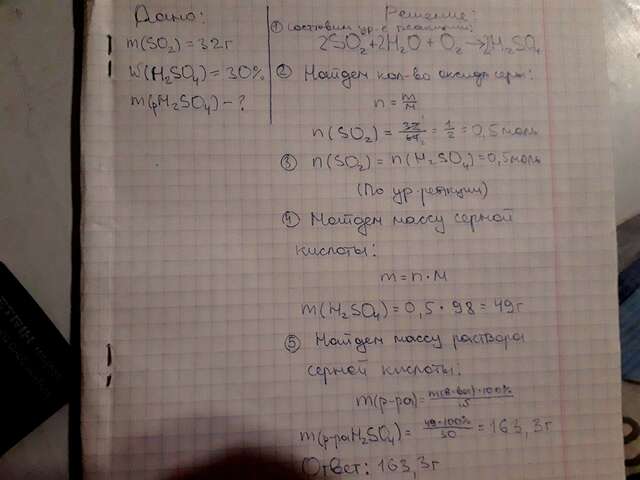 Дано:
m(SO₂) = 32г
W(H₂SO₄) = 30%
m(pH₂SO₄) - ?
Решение:
① составим ур-е реакции:
2SO₂ + 2H₂O + O₂ → 2H₂SO₄
② Найдем кол-во оксида серы:
n = m/M
n(SO₂) = 32/64 = 1/2 = 0,5 моль
③ n(SO₂) = n(H₂SO₄) = 0,5 моль
(По ур. реакции)
④ Найдем массу серной
кислоты:
m = n · M
m(H₂SO₄) = 0,5 · 98 = 49г
⑤ Найдем массу раствора
серной кислоты:
m(р-ра) = m(в-ва) · 100% /
m(р-раH₂SO₄) = 49 · 100% / 30 = 163,3г
Ответ: 163,3г